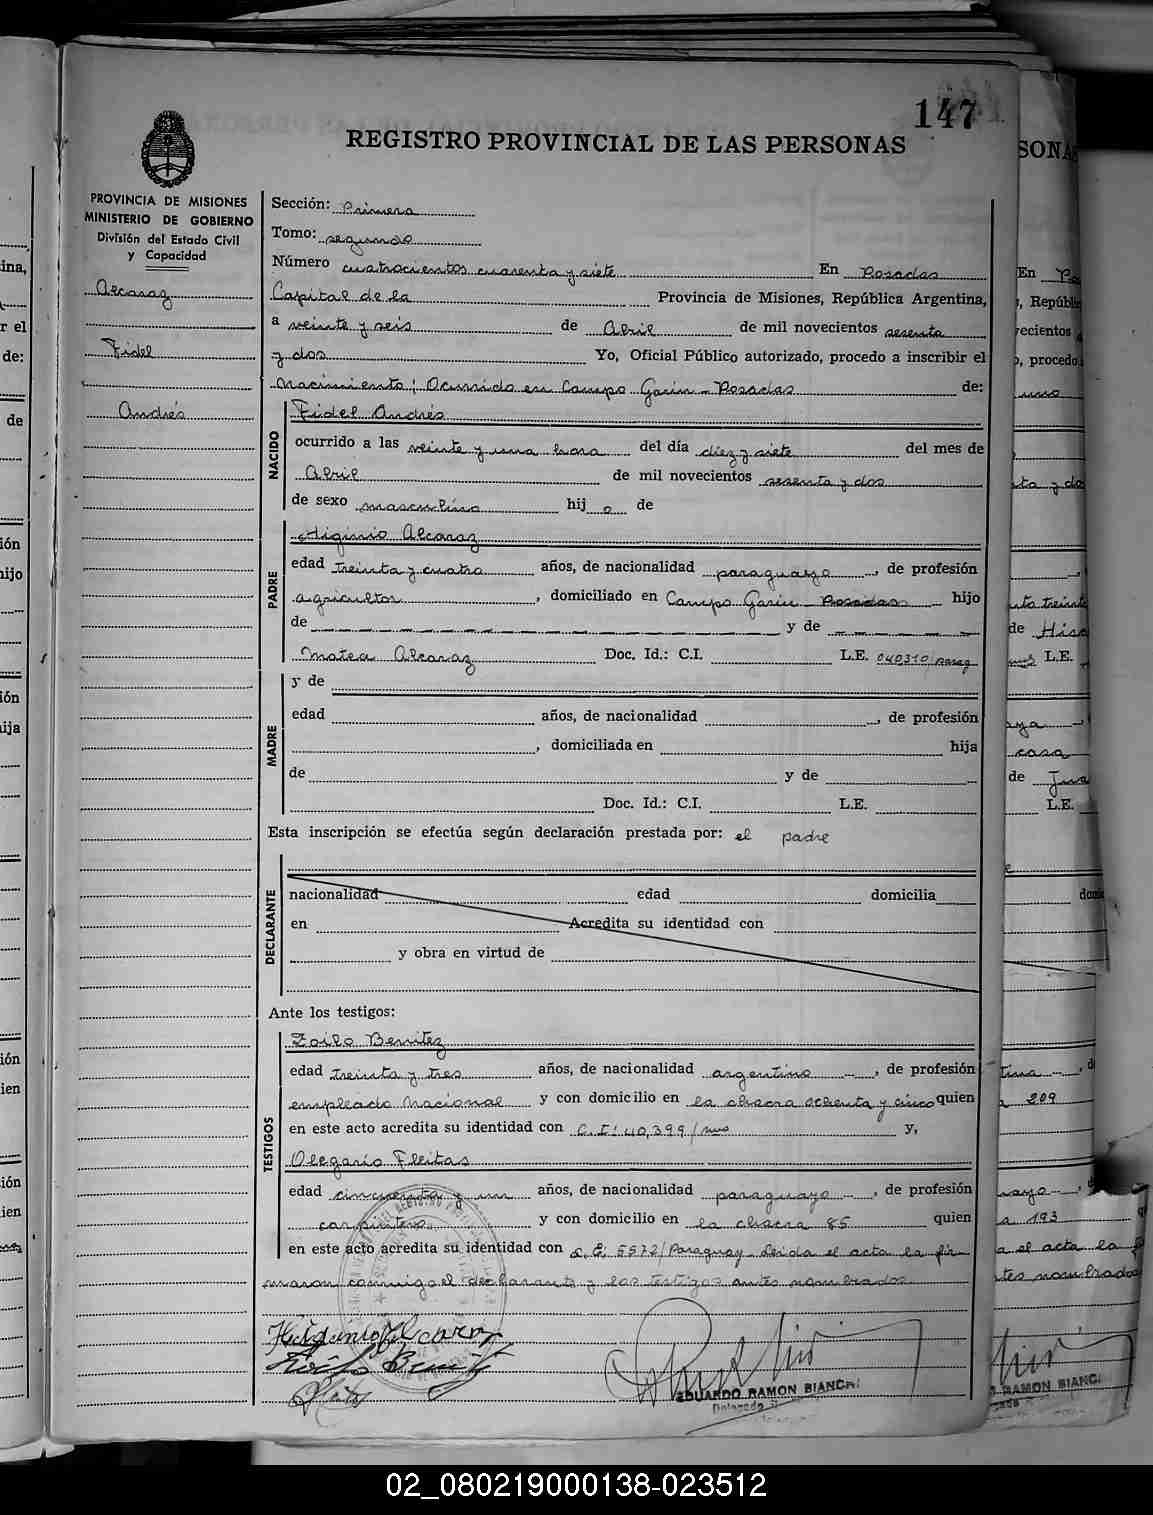 147
REGISTRO PROVINCIAL DE LAS PERSONAS
PROVINCIA DE MISIONES
MINISTERIO DE GOBIERNO
División del Estado Civil
y Capacidad
Alcaraz
Fidel
Andrés
Sección: Primera
Tomo: segundo
Número cuatrocientos cuarenta y siete En Posadas
Capital de la Provincia de Misiones, República Argentina,
a veinte y seis de Abril de mil novecientos sesenta
y dos Yo, Oficial Público autorizado, procedo a inscribir el
Nacimiento; Ocurrido en Campo Garín - Posadas de:
NACIDO
Fidel Andrés
ocurrido a las veinte y una hora del día diez y siete del mes de
Abril de mil novecientos sesenta y dos
de sexo masculino hij o de
PADRE
Higinio Alcaraz
edad treinta y cuatro años, de nacionalidad paraguayo, de profesión
agricultor, domiciliado en Campo Garín - Posadas hijo
de y de
Matea Alcaraz Doc. Id.: C.I. L.E. 040310/parag
MADRE
y de
edad años, de nacionalidad , de profesión
, domiciliada en hija
de y de
Doc. Id.: C.I. L.E.
Esta inscripción se efectúa según declaración prestada por: el padre
DECLARANTE
nacionalidad edad domicilia
en Acredita su identidad con
y obra en virtud de
Ante los testigos:
TESTIGOS
Zoilo Benitez
edad treinta y tres años, de nacionalidad argentino, de profesión
empleado Nacional y con domicilio en la chacra ochenta y cinco quien
en este acto acredita su identidad con C.I: 40,399/mns y,
Olegario Fleitas
edad cincuenta y un años, de nacionalidad paraguayo, de profesión
carpintero y con domicilio en la chacra 85 quien
en este acto acredita su identidad con L.E. 5572/Paraguay. Leida el acta la fir-
maron conmigo el declarante y los testigos antes nombrados
Higinio Alcaraz
Zoilo Benitez
EDUARDO RAMON BIANCHI
Delegado
02_080219000138-023512